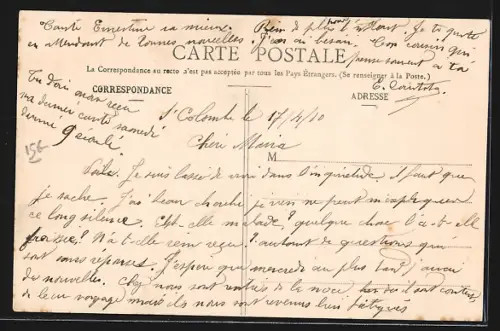 Tante Ernestine va mieux
en attendant de bonnes nouvelles
Rien de plus pour l'instant. Je te quitte
J'en ai besoin. Ton cousin qui
pense souvent à toi
CARTE POSTALE
La Correspondance au recto n'est pas acceptée par tous les Pays Étrangers. (Se renseigner à la Poste.)
CORRESPONDANCE
ADRESSE
E.
Tu dois avoir reçu
ma dernière carte samedi
dernier 9 écoulé
15€
St Colombe le 17/4/10
Chère Maria
M
Voilà. Je suis lasse de vivre dans l'inquiétude il faut que
je sache. J'ai beau chercher je n'en ne peut m'expliquer
ce long silence. Est-elle malade? quelque chose l'a-t-elle
froissée? N'a-t-elle rien reçu? autant de questions qui
sont sans réponses. J'espère que mercredi au plus tard j'aurai
des nouvelles. Chez nous sont rentrés de la noce hier soir ils sont contents
de leur voyage mais ils nous sont revenus bien fatigués